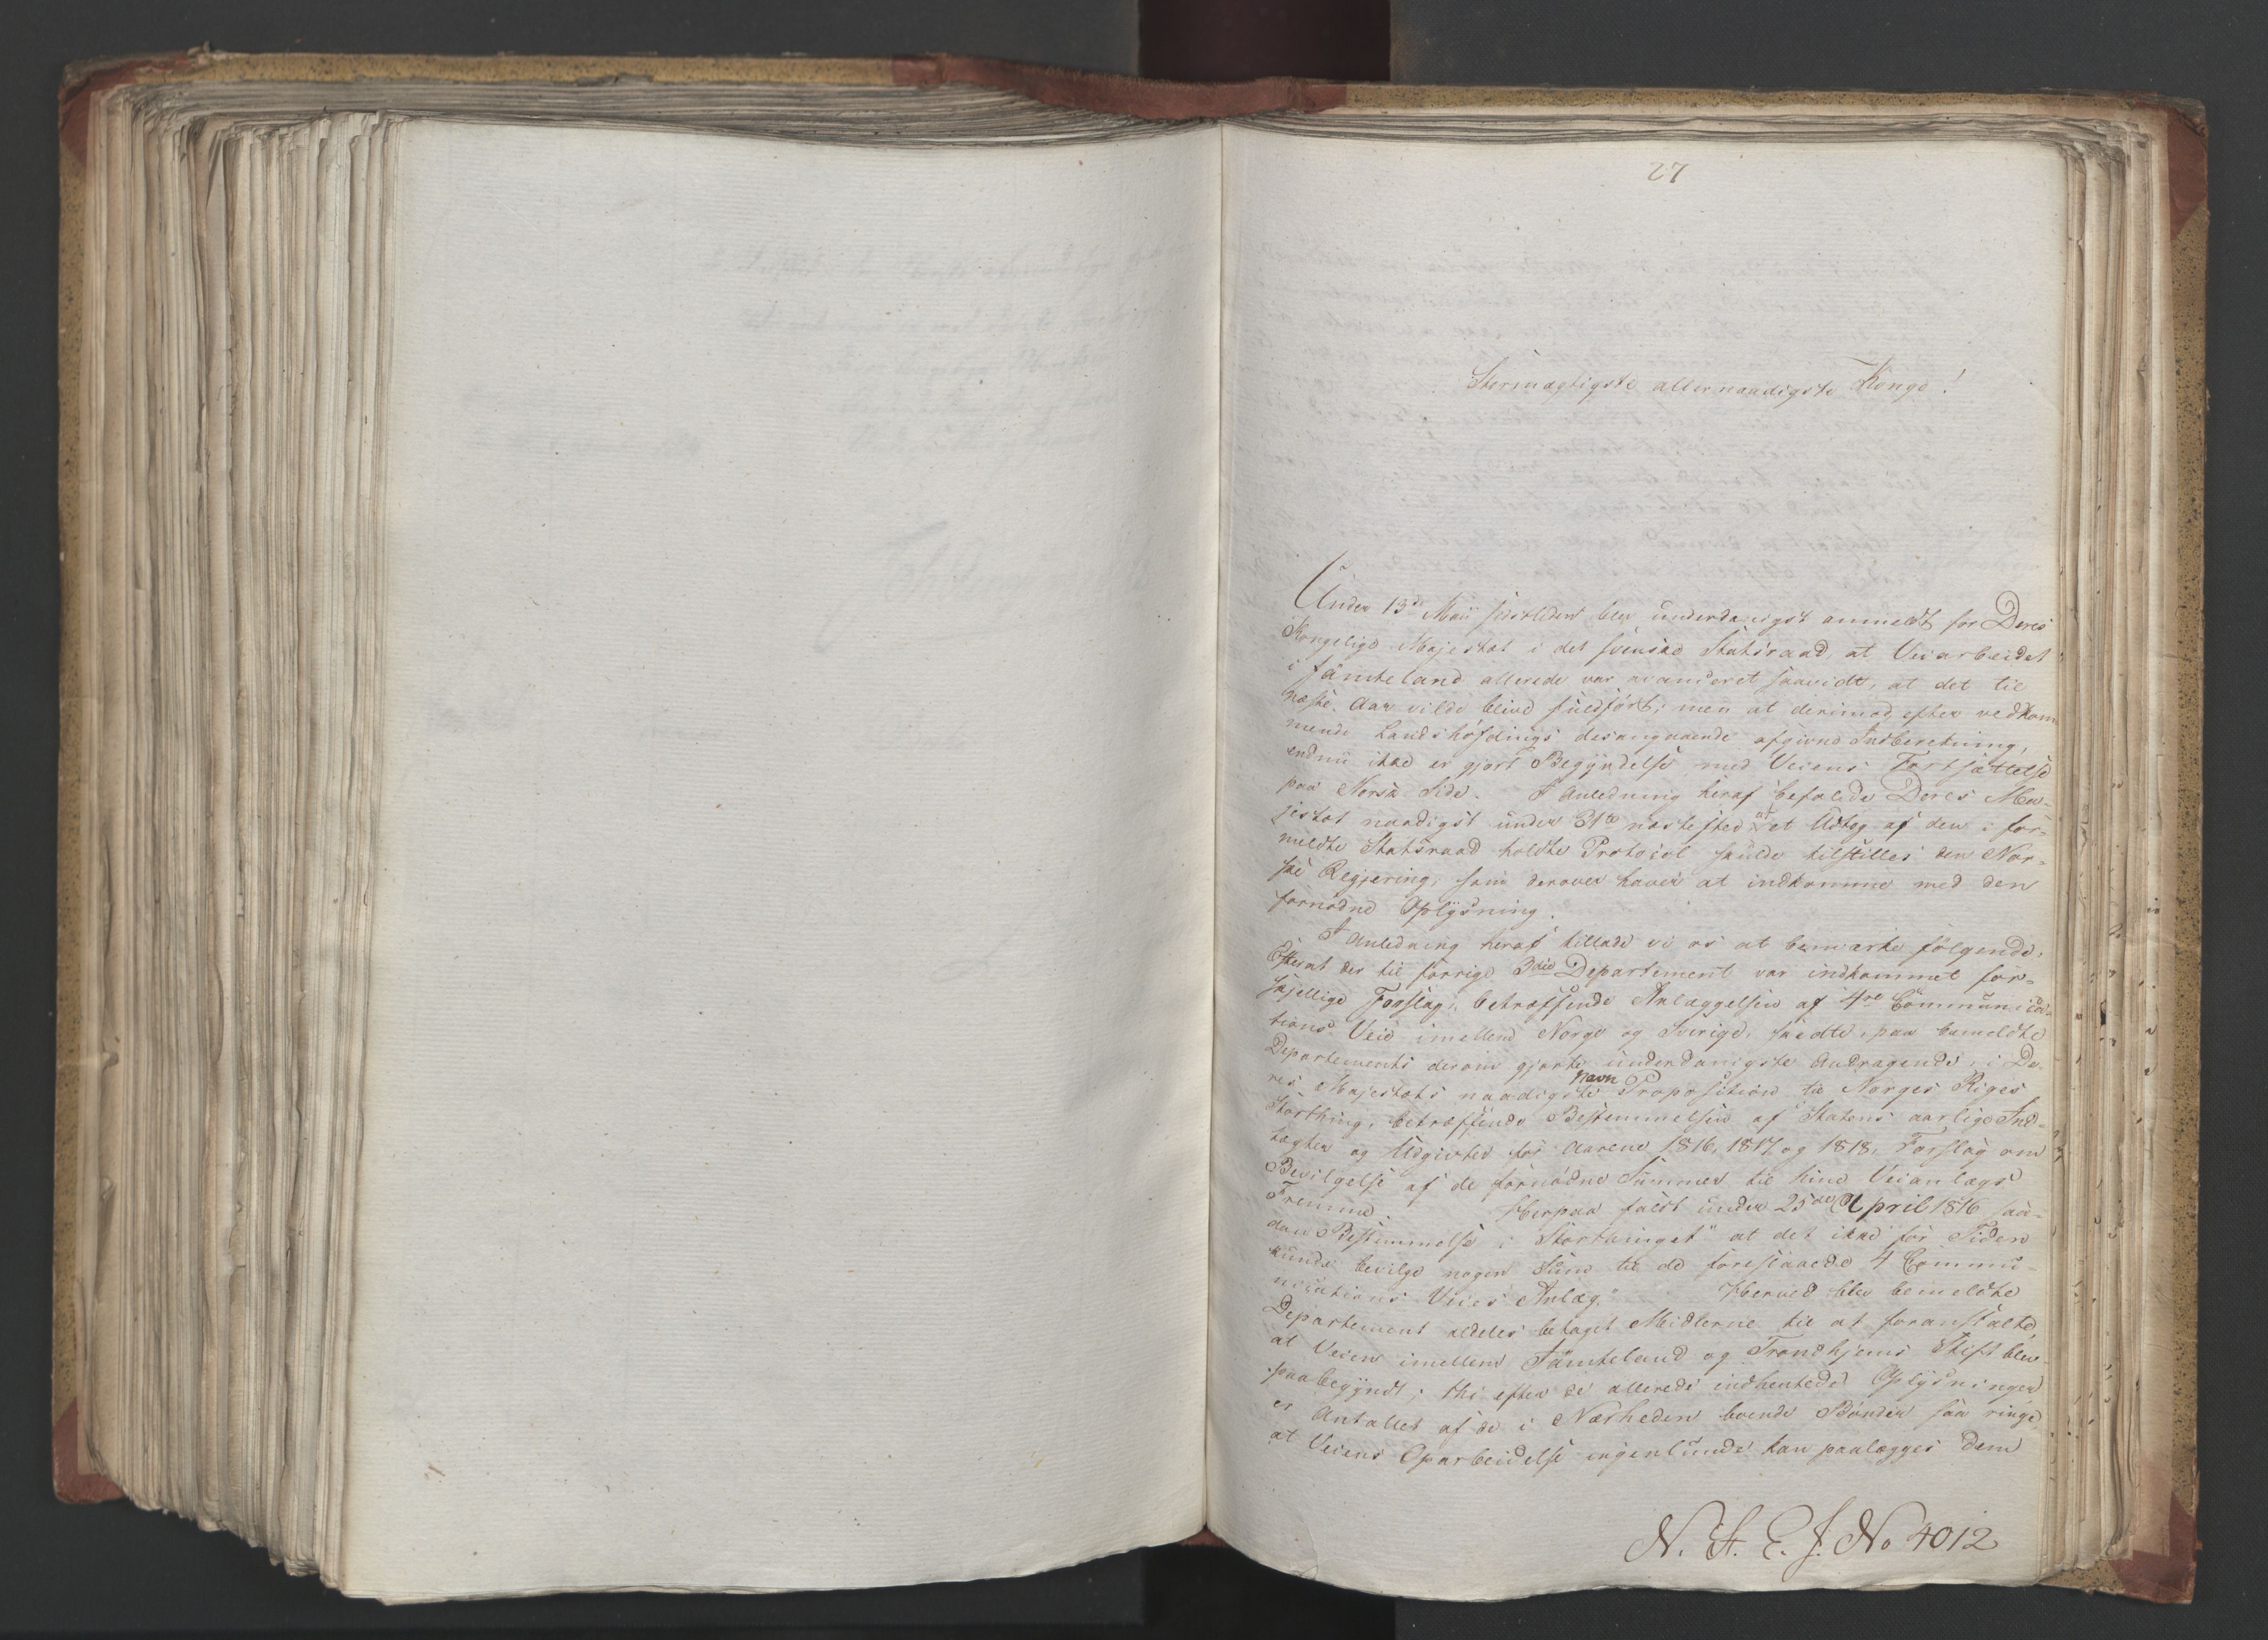 27
Stormægtigste allernaadigste Konge!
Under 13de Maii sidstleden blev underdanigst anmeldt for Deres
Kongelige Majestæt i det svenske Statsraad, at Veiarbeidet
i Jämteland allerede var avanceret saavidt, at det til
næste Aar vilde blive fuldført; men at derimod efter vedkom
mende Landshöfdings desangaaende afgivne Indberetning,
endnu ikke er gjort Begyndelse med Veiens Fortsættelse
paa Norsk Side. I Anledning heraf befalede Deres Ma-
jestæt naadigst under 31te næstefter at et Udtog af den i for-
meldte Statsraad holdte Protocol skulde tilstilles den Nor-
ske Regjering, som derover haver at indkomme med den
fornødne Oplysning.
I Anledning heraf tillade vi os at bemærke følgende.
Efterat der til forrige 3die Departement var indkommet for-
skjellige Forslag, betræffende Anlæggelsen af 4re Communica-
tions Veie imellem Norge og Sverige, skedte, paa bemeldte
Departements derom gjorte underdanigste Andragende, i De-
res Majestæts naadigste Proposition til Norges Riges
Storthing, betræffende Bestemmelsen af Statens aarlige Ind-
tægter og Udgivter for Aarene 1816, 1817 og 1818, Forslag om
Bevilgelse af de fornødne Summer til hine Veianlægs
Fremme. Herpaa faldt under 25de April 1816 saa-
dan Bestemmelse i Storthinget "at det ikke for Tiden
kunde bevilge nogen Sum til de foreslaaede 4 Commu-
nications Veies Anlæg." Herved blev bemeldte
Departement aldeles betaget Midlerne til at foranstalte,
at Veien imellem Jämteland og Trondhjems Stift blev
paabegyndt; thi efter de allerede indhentede Oplysninger
er Antallet af de i Nærheden boende Bønder saa ringe,
at Veiens Oparbeidelse ingenlunde kan paalægges dem
N. St. E. J. No 4012